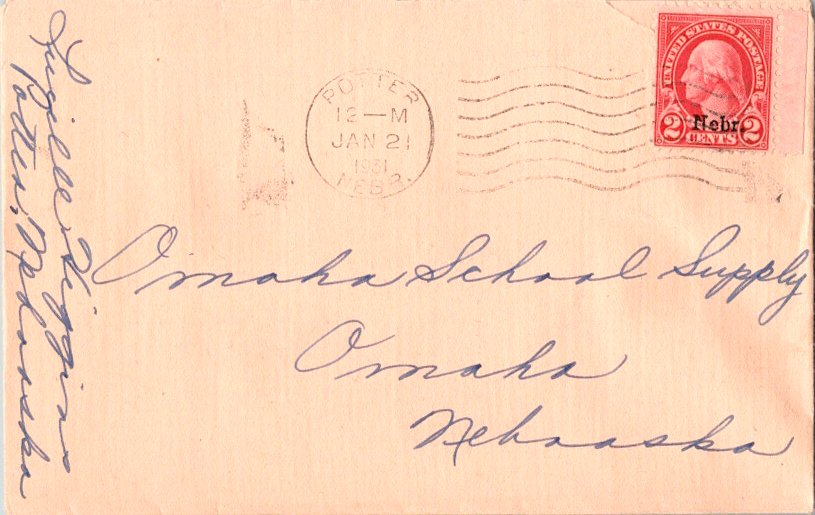 Lucille Higgins
Potter, Nebraska
POTTER
12—M
JAN 21
1931
NEBR.
UNITED STATES POSTAGE
Nebr.
2 CENTS 2
Omaha School Supply
Omaha
Nebraska